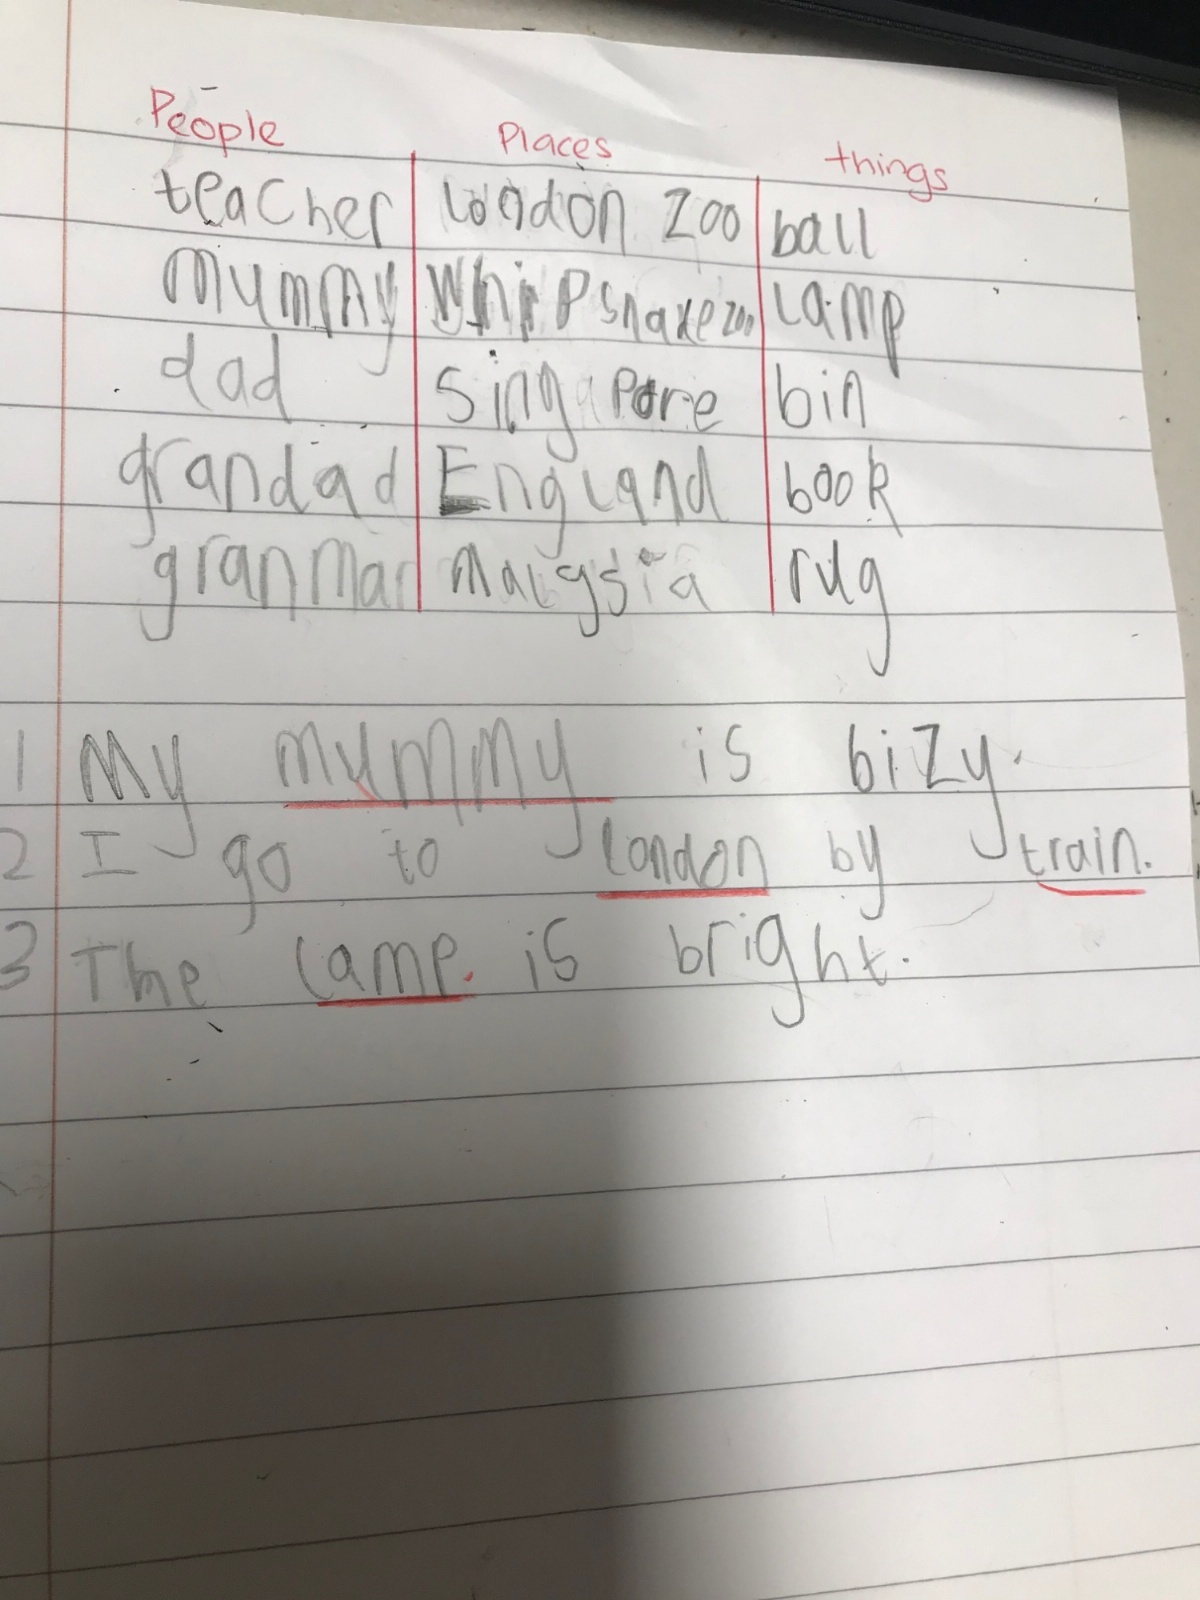 People Places things
teacher London Zoo ball
Mummy Whipsnake zoo lamp
dad Singapore bin
grandad England book
granmar Malaysia rug
1 My mummy is bizy.
2 I go to london by train.
3 The lamp. is bright.